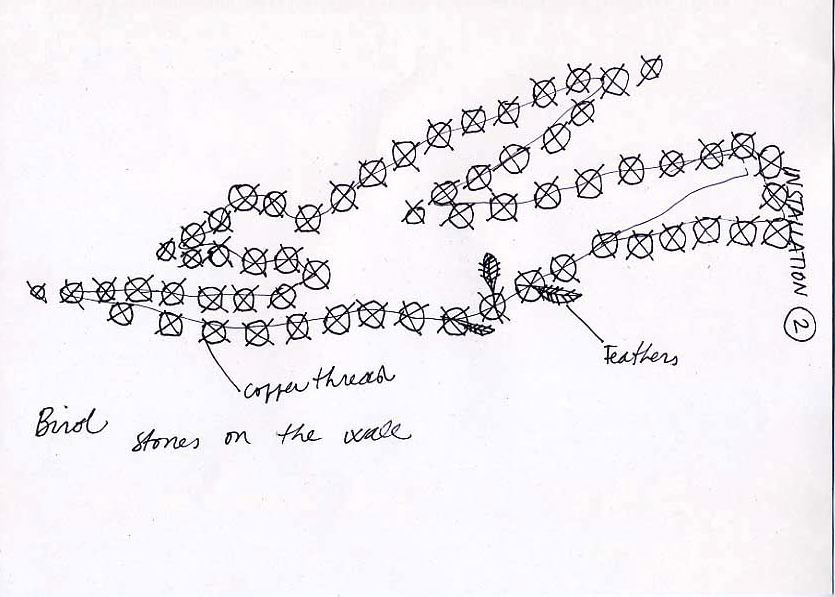 INSTALLATION 2
Feathers
Copper thread
Bird
Stones on the wall